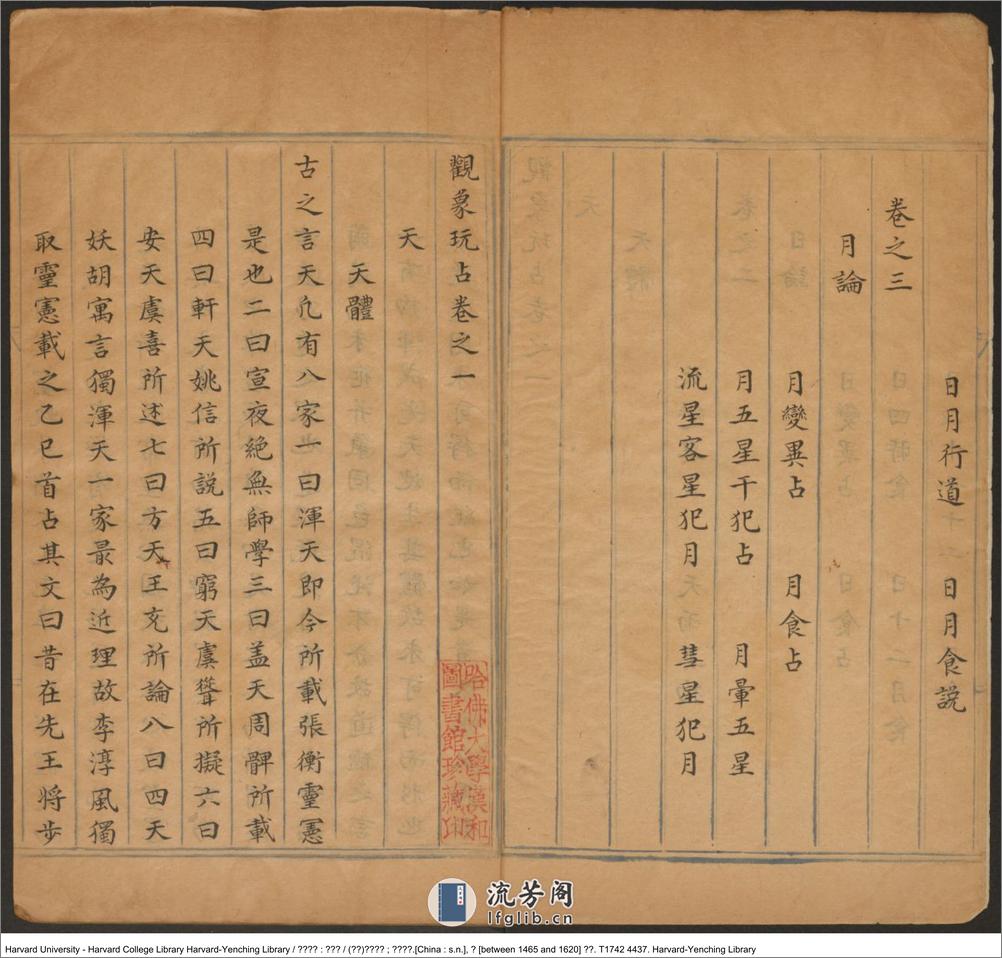 日月行道 日月食説
卷之三
月論
月變異占 月食占
月五星干犯占 月暈五星
流星客星犯月 彗星犯月
觀象玩占卷之一
天
天體
古之言天凡有八家一曰渾天即今所載張衡靈憲
是也二曰宣夜絶無師學三曰盖天周髀所載
四曰軒天姚信所説五曰窮天虞聳所擬六曰
安天虞喜所述七曰方天王充所論八曰四天
妖胡寓言獨渾天一家最為近理故李淳風獨
取靈憲載之乙巳首占其文曰昔在先王将步
哈佛大學漢和
圖書館珍藏印
流芳阁
lfglib.cn
Harvard University - Harvard College Library Harvard-Yenching Library / ???? : ??? / (??)???? ; ????.[China : s.n.], ? [between 1465 and 1620] ??. T1742 4437. Harvard-Yenching Library